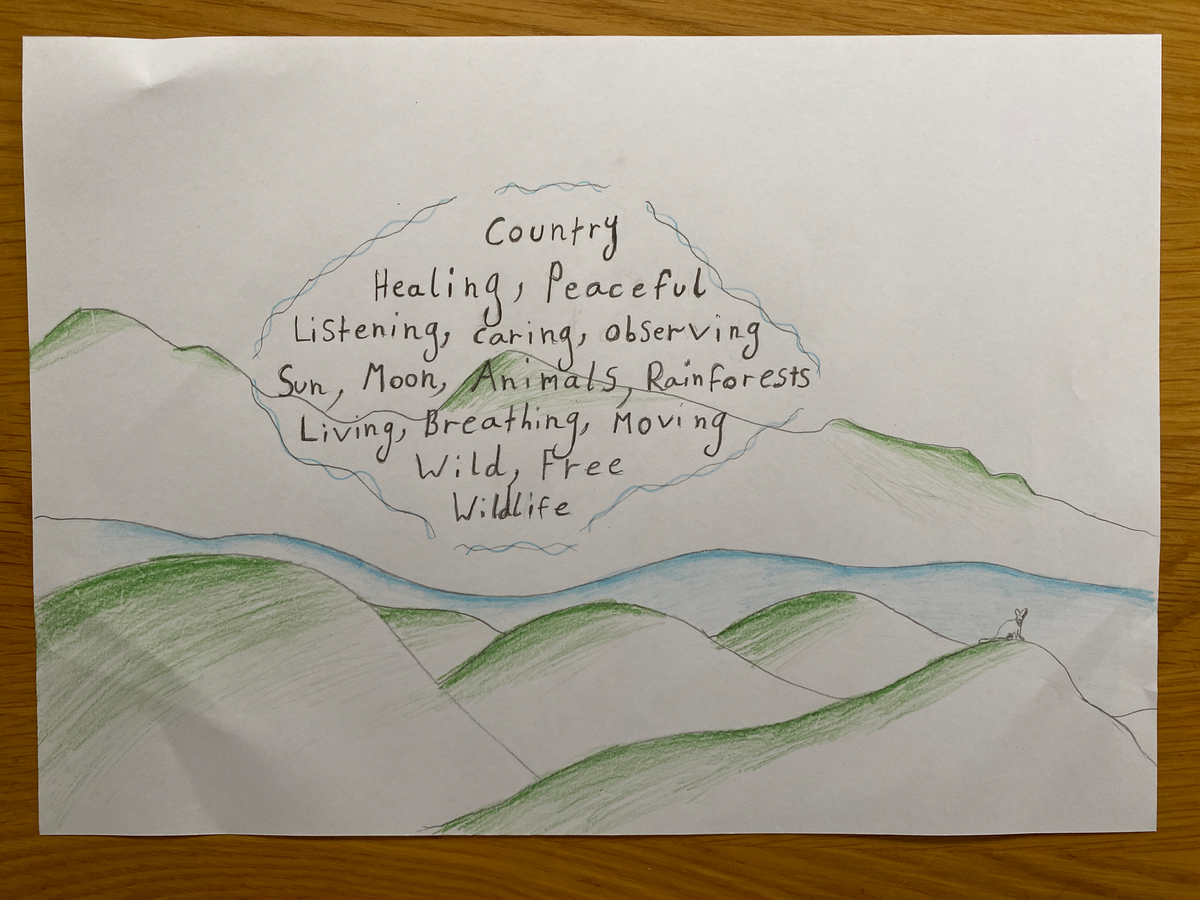 Country
Healing, Peaceful
Listening, caring, observing
Sun, Moon, Animals, Rainforests
Living, Breathing, Moving
Wild, Free
Wildlife